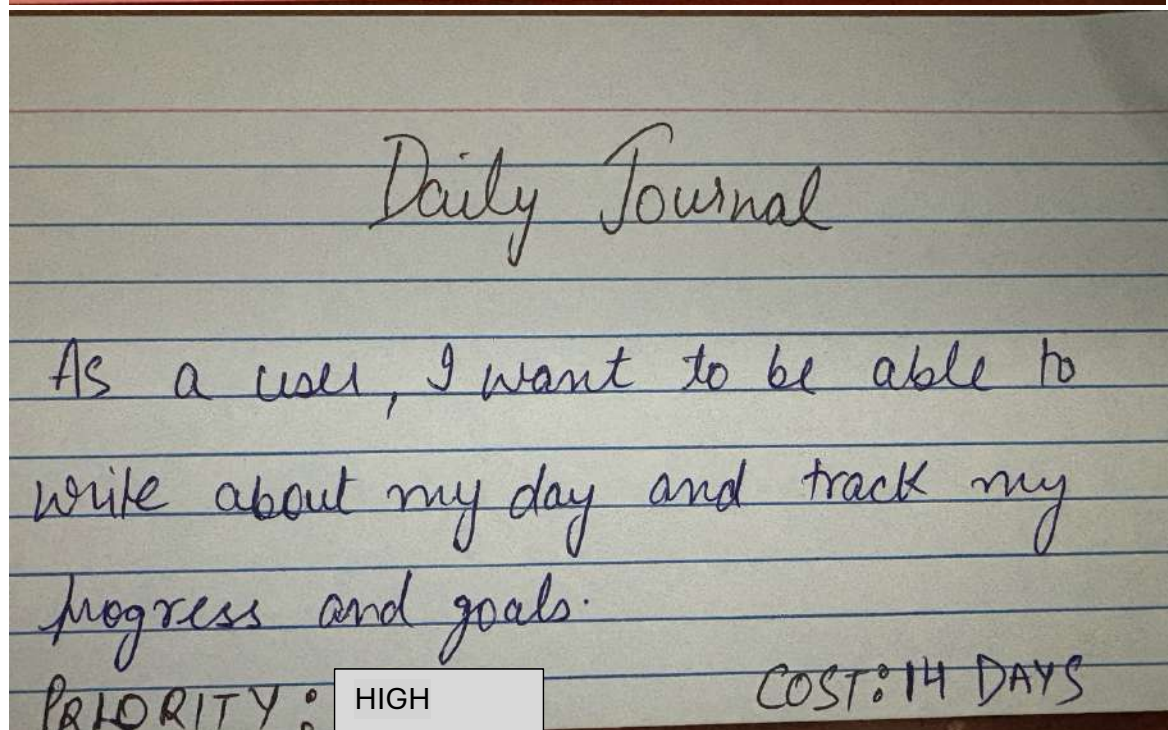 Daily Journal
As a user, I want to be able to
write about my day and track my
progress and goals.
PRIORITY: HIGH COST: 14 DAYS